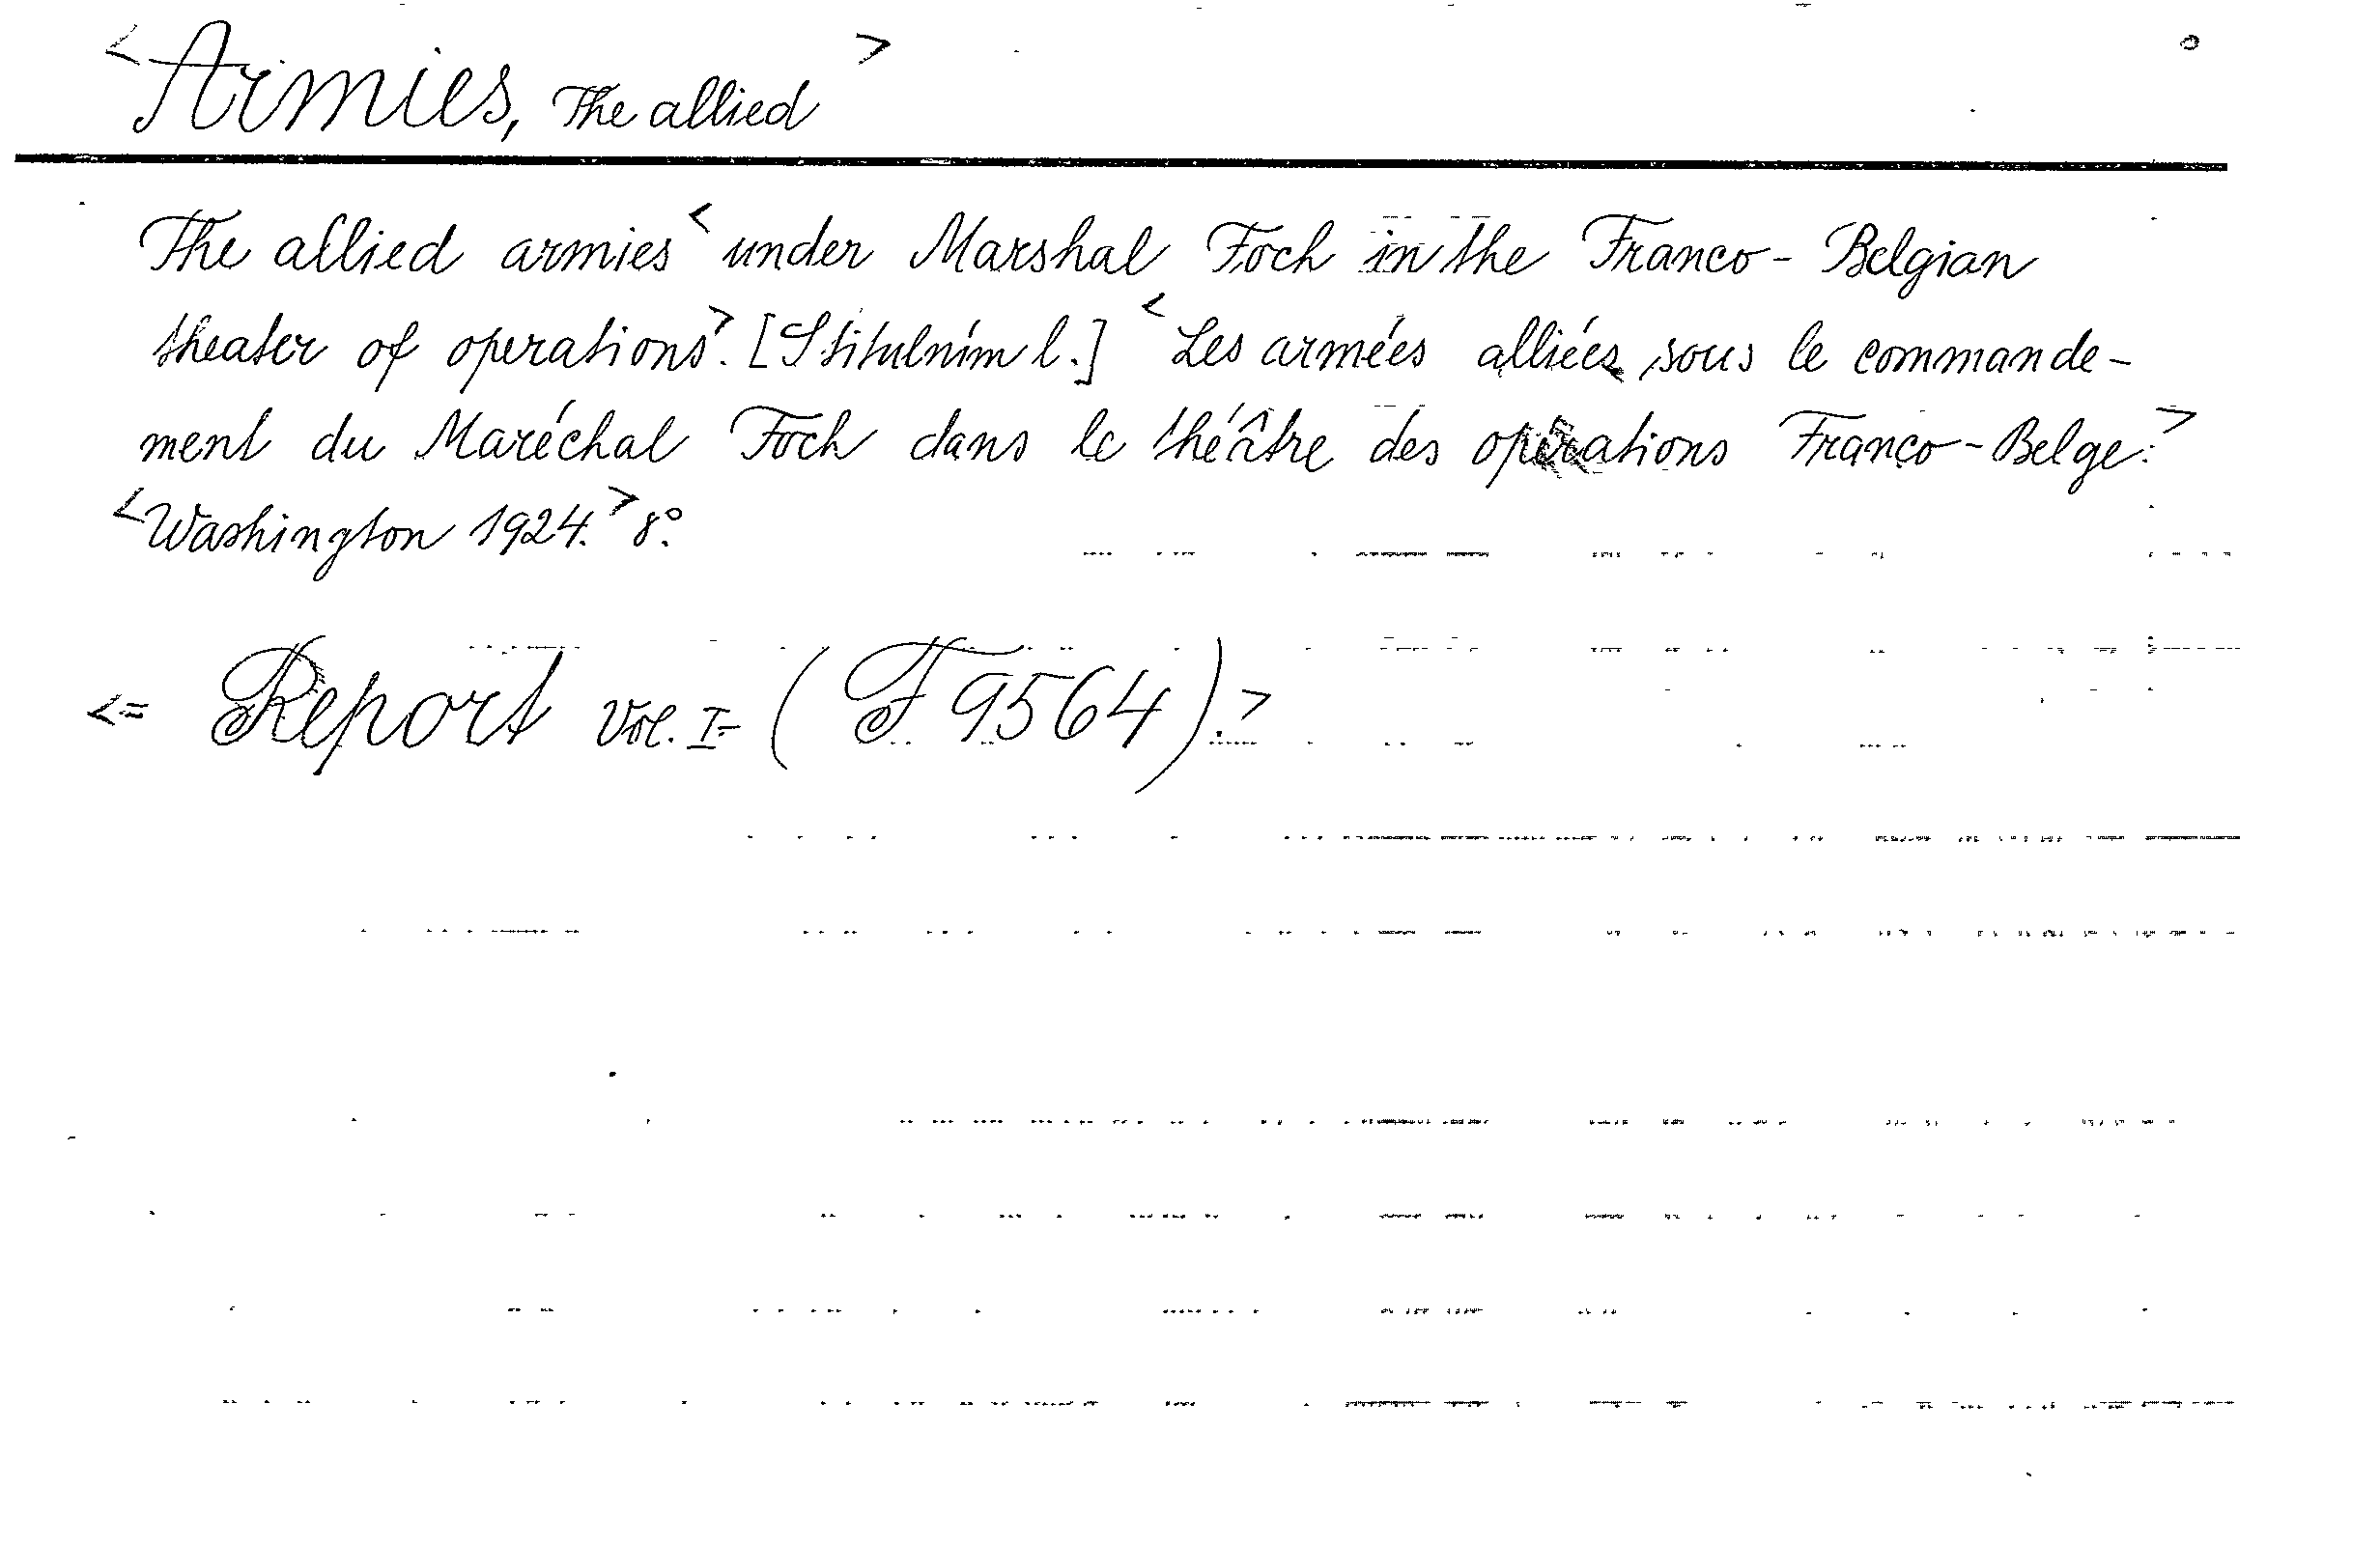 <Armies, The allied>
The allied armies <under Marshal Foch in the Franco-Belgian
theater of operations>. [S titulním l.] <Les armées alliées sous le commande-
ment du Maréchal Foch dans le théâtre des opérations Franco-Belge.>
<Washington 1924.> 8°.
<= Report Vol. I.- (F 9564).>